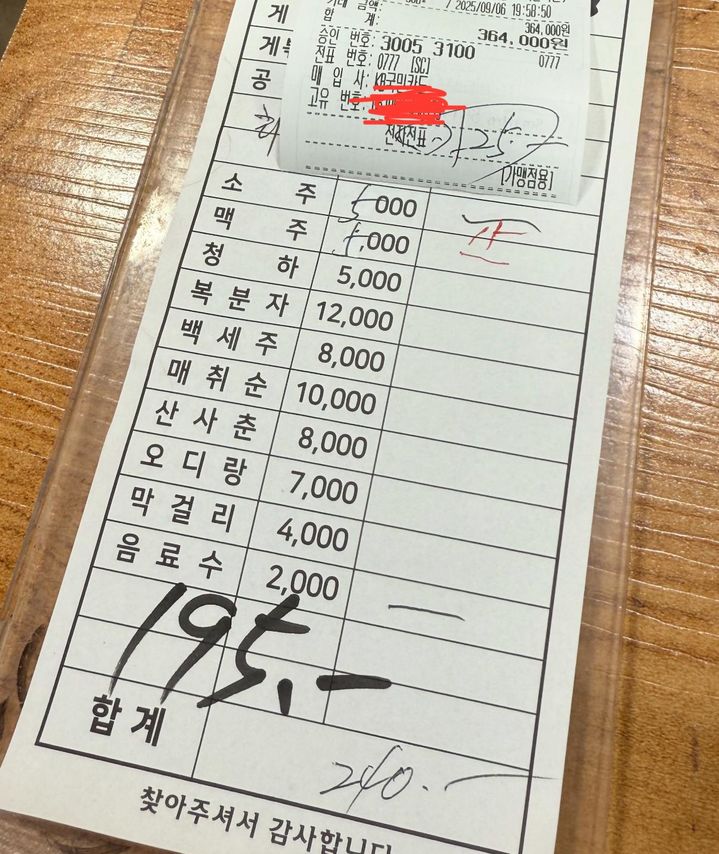 / 2025/09/06 19:58:50
거래 금액: 364,000원
합 계: 364,000원
승인 번호: 3005 3100 0777
전표 번호: 0777 [SC]
매 입 사: KB국민카드
고유 번호:
전자전표
[가맹점용]
게
게
공
소 주 5000
맥 주 5,000
청 하 5,000
복 분 자 12,000
백 세 주 8,000
매 취 순 10,000
산 사 춘 8,000
오 디 랑 7,000
막 걸 리 4,000
음 료 수 2,000
195.-
합 계 240.-
찾아주셔서 감사합니다